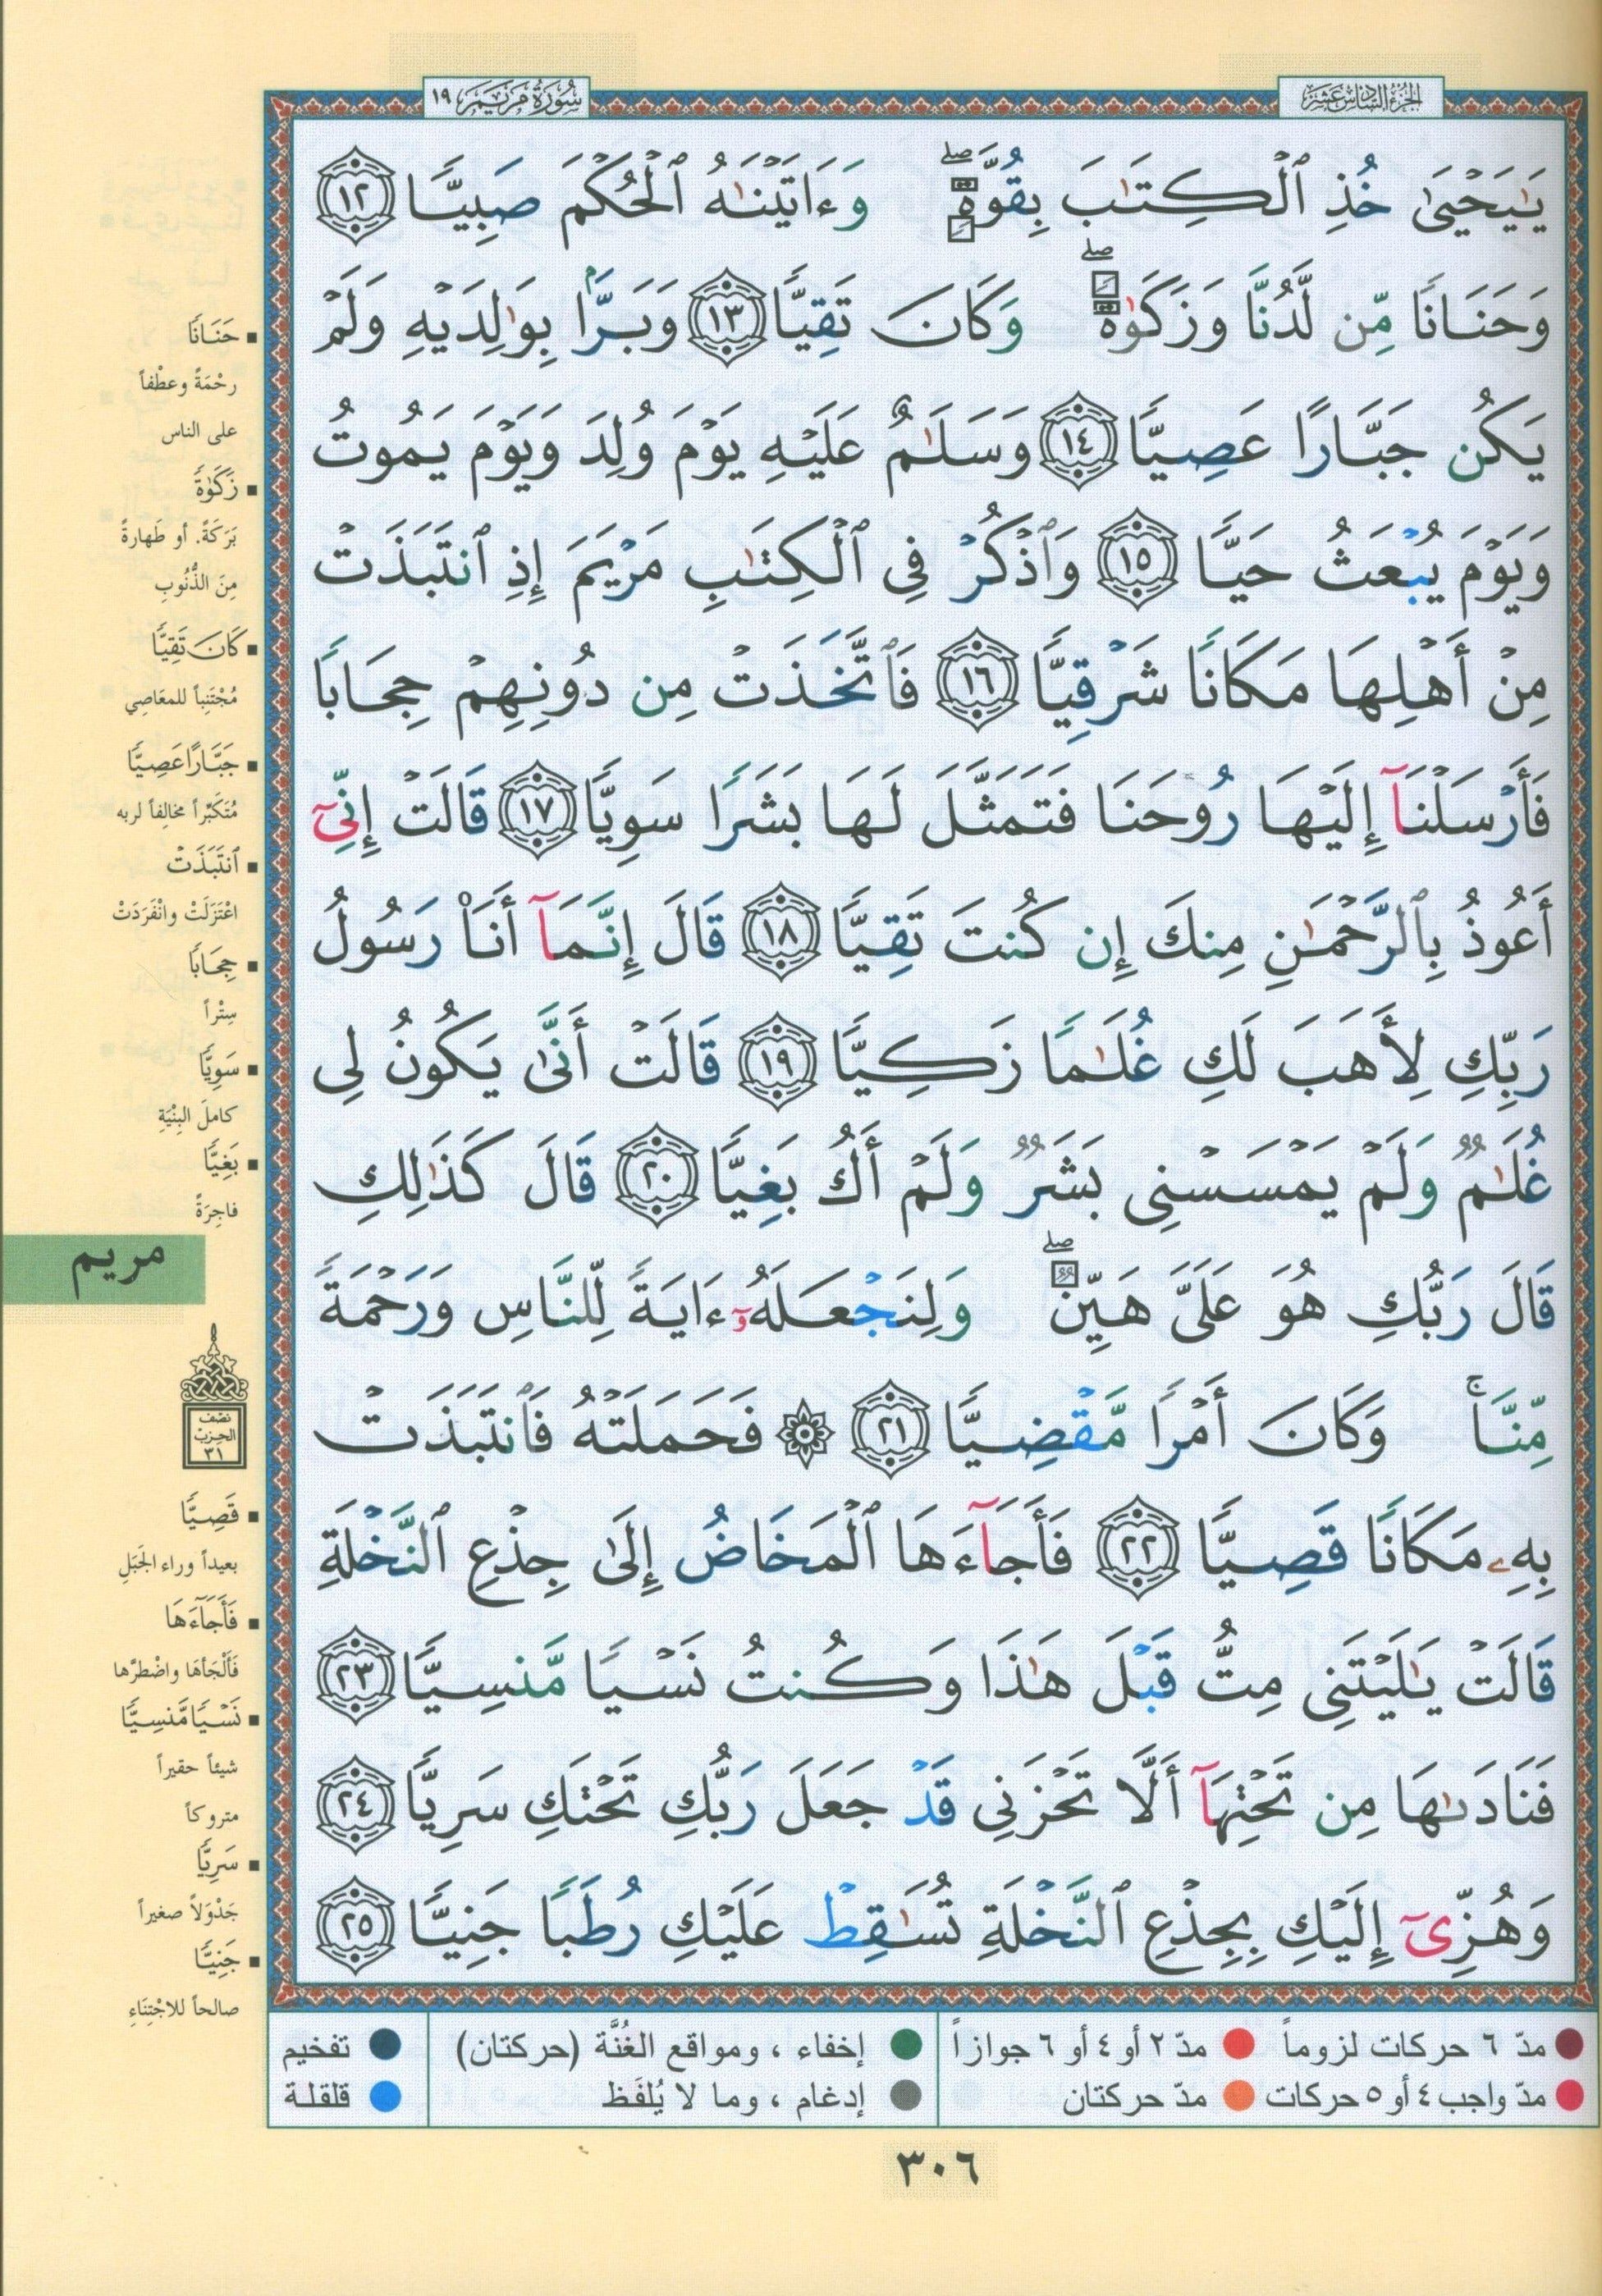 الجزء السادس عشر
سورة مريم ١٩
يَٰيَحْيَىٰ خُذِ ٱلْكِتَٰبَ بِقُوَّةٍ ۖ وَءَاتَيْنَٰهُ ٱلْحُكْمَ صَبِيًّا ١٢
وَحَنَانًا مِّن لَّدُنَّا وَزَكَوٰةً ۖ وَكَانَ تَقِيًّا ١٣ وَبَرًّۢا بِوَٰلِدَيْهِ وَلَمْ
يَكُن جَبَّارًا عَصِيًّا ١٤ وَسَلَٰمٌ عَلَيْهِ يَوْمَ وُلِدَ وَيَوْمَ يَمُوتُ
وَيَوْمَ يُبْعَثُ حَيًّا ١٥ وَٱذْكُرْ فِى ٱلْكِتَٰبِ مَرْيَمَ إِذِ ٱنتَبَذَتْ
مِنْ أَهْلِهَا مَكَانًا شَرْقِيًّا ١٦ فَٱتَّخَذَتْ مِن دُونِهِمْ حِجَابًا
فَأَرْسَلْنَآ إِلَيْهَا رُوحَنَا فَتَمَثَّلَ لَهَا بَشَرًا سَوِيًّا ١٧ قَالَتْ إِنِّىٓ
أَعُوذُ بِٱلرَّحْمَٰنِ مِنكَ إِن كُنتَ تَقِيًّا ١٨ قَالَ إِنَّمَآ أَنَا۠ رَسُولُ
رَبِّكِ لِأَهَبَ لَكِ غُلَٰمًا زَكِيًّا ١٩ قَالَتْ أَنَّىٰ يَكُونُ لِى
غُلَٰمٌ وَلَمْ يَمْسَسْنِى بَشَرٌ وَلَمْ أَكُ بَغِيًّا ٢٠ قَالَ كَذَٰلِكِ
قَالَ رَبُّكِ هُوَ عَلَىَّ هَيِّنٌ ۖ وَلِنَجْعَلَهُۥٓ ءَايَةً لِّلنَّاسِ وَرَحْمَةً
مِّنَّا ۚ وَكَانَ أَمْرًا مَّقْضِيًّا ٢١ ۞ فَحَمَلَتْهُ فَٱنتَبَذَتْ
بِهِۦ مَكَانًا قَصِيًّا ٢٢ فَأَجَآءَهَا ٱلْمَخَاضُ إِلَىٰ جِذْعِ ٱلنَّخْلَةِ
قَالَتْ يَٰلَيْتَنِى مِتُّ قَبْلَ هَٰذَا وَكُنتُ نَسْيًا مَّنسِيًّا ٢٣
فَنَادَىٰهَا مِن تَحْتِهَآ أَلَّا تَحْزَنِى قَدْ جَعَلَ رَبُّكِ تَحْتَكِ سَرِيًّا ٢٤
وَهُزِّىٓ إِلَيْكِ بِجِذْعِ ٱلنَّخْلَةِ تُسَٰقِطْ عَلَيْكِ رُطَبًا جَنِيًّا ٢٥
▪ حَنَانًا
رحْمَةً وعطْفاً
على الناس
▪ زَكَوٰةً
بَرَكَةً. أو طَهارةً
مِنَ الذُّنُوبِ
▪ كَانَ تَقِيًّا
مُجْتَنِباً للمعَاصِي
▪ جَبَّارًا عَصِيًّا
مُتَكَبِّراً مخالِفاً لربه
▪ ٱنتَبَذَتْ
اعْتَزَلَتْ وانْفَرَدَتْ
▪ حِجَابًا
سِتْراً
▪ سَوِيًّا
كاملَ البِنْيَةِ
▪ بَغِيًّا
فاجِرَةً
مريم
نصف
الحزب
٣١
▪ قَصِيًّا
بعيداً وراء الجَبَلِ
▪ فَأَجَآءَهَا
فَأَلْجَأَهَا واضْطرَّها
▪ نَسْيًا مَّنسِيًّا
شيئاً حقيراً
متروكاً
▪ سَرِيًّا
جَدْوَلاً صغيراً
▪ جَنِيًّا
صالحاً للاجْتِنَاءِ
مدّ ٦ حركات لزوماً مدّ ٢ أو ٤ أو ٦ جوازاً إخفاء ، ومواقع الغُنَّة (حركتان) تفخيم
مدّ واجب ٤ أو ٥ حركات مدّ حركتان إدغام ، وما لا يُلفَظ قلقلة
٣٠٦